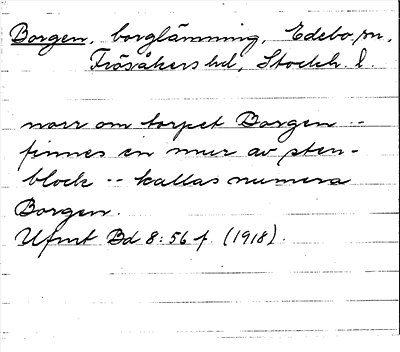 Borgen, borglämning, Edebo sn,
Frösåkers hd, Stockh. l.
norr om torpet Borgen --
finnes en mur av sten-
block -- kallas numera
Borgen.
Ufmt Bd 8:56 f. (1918).